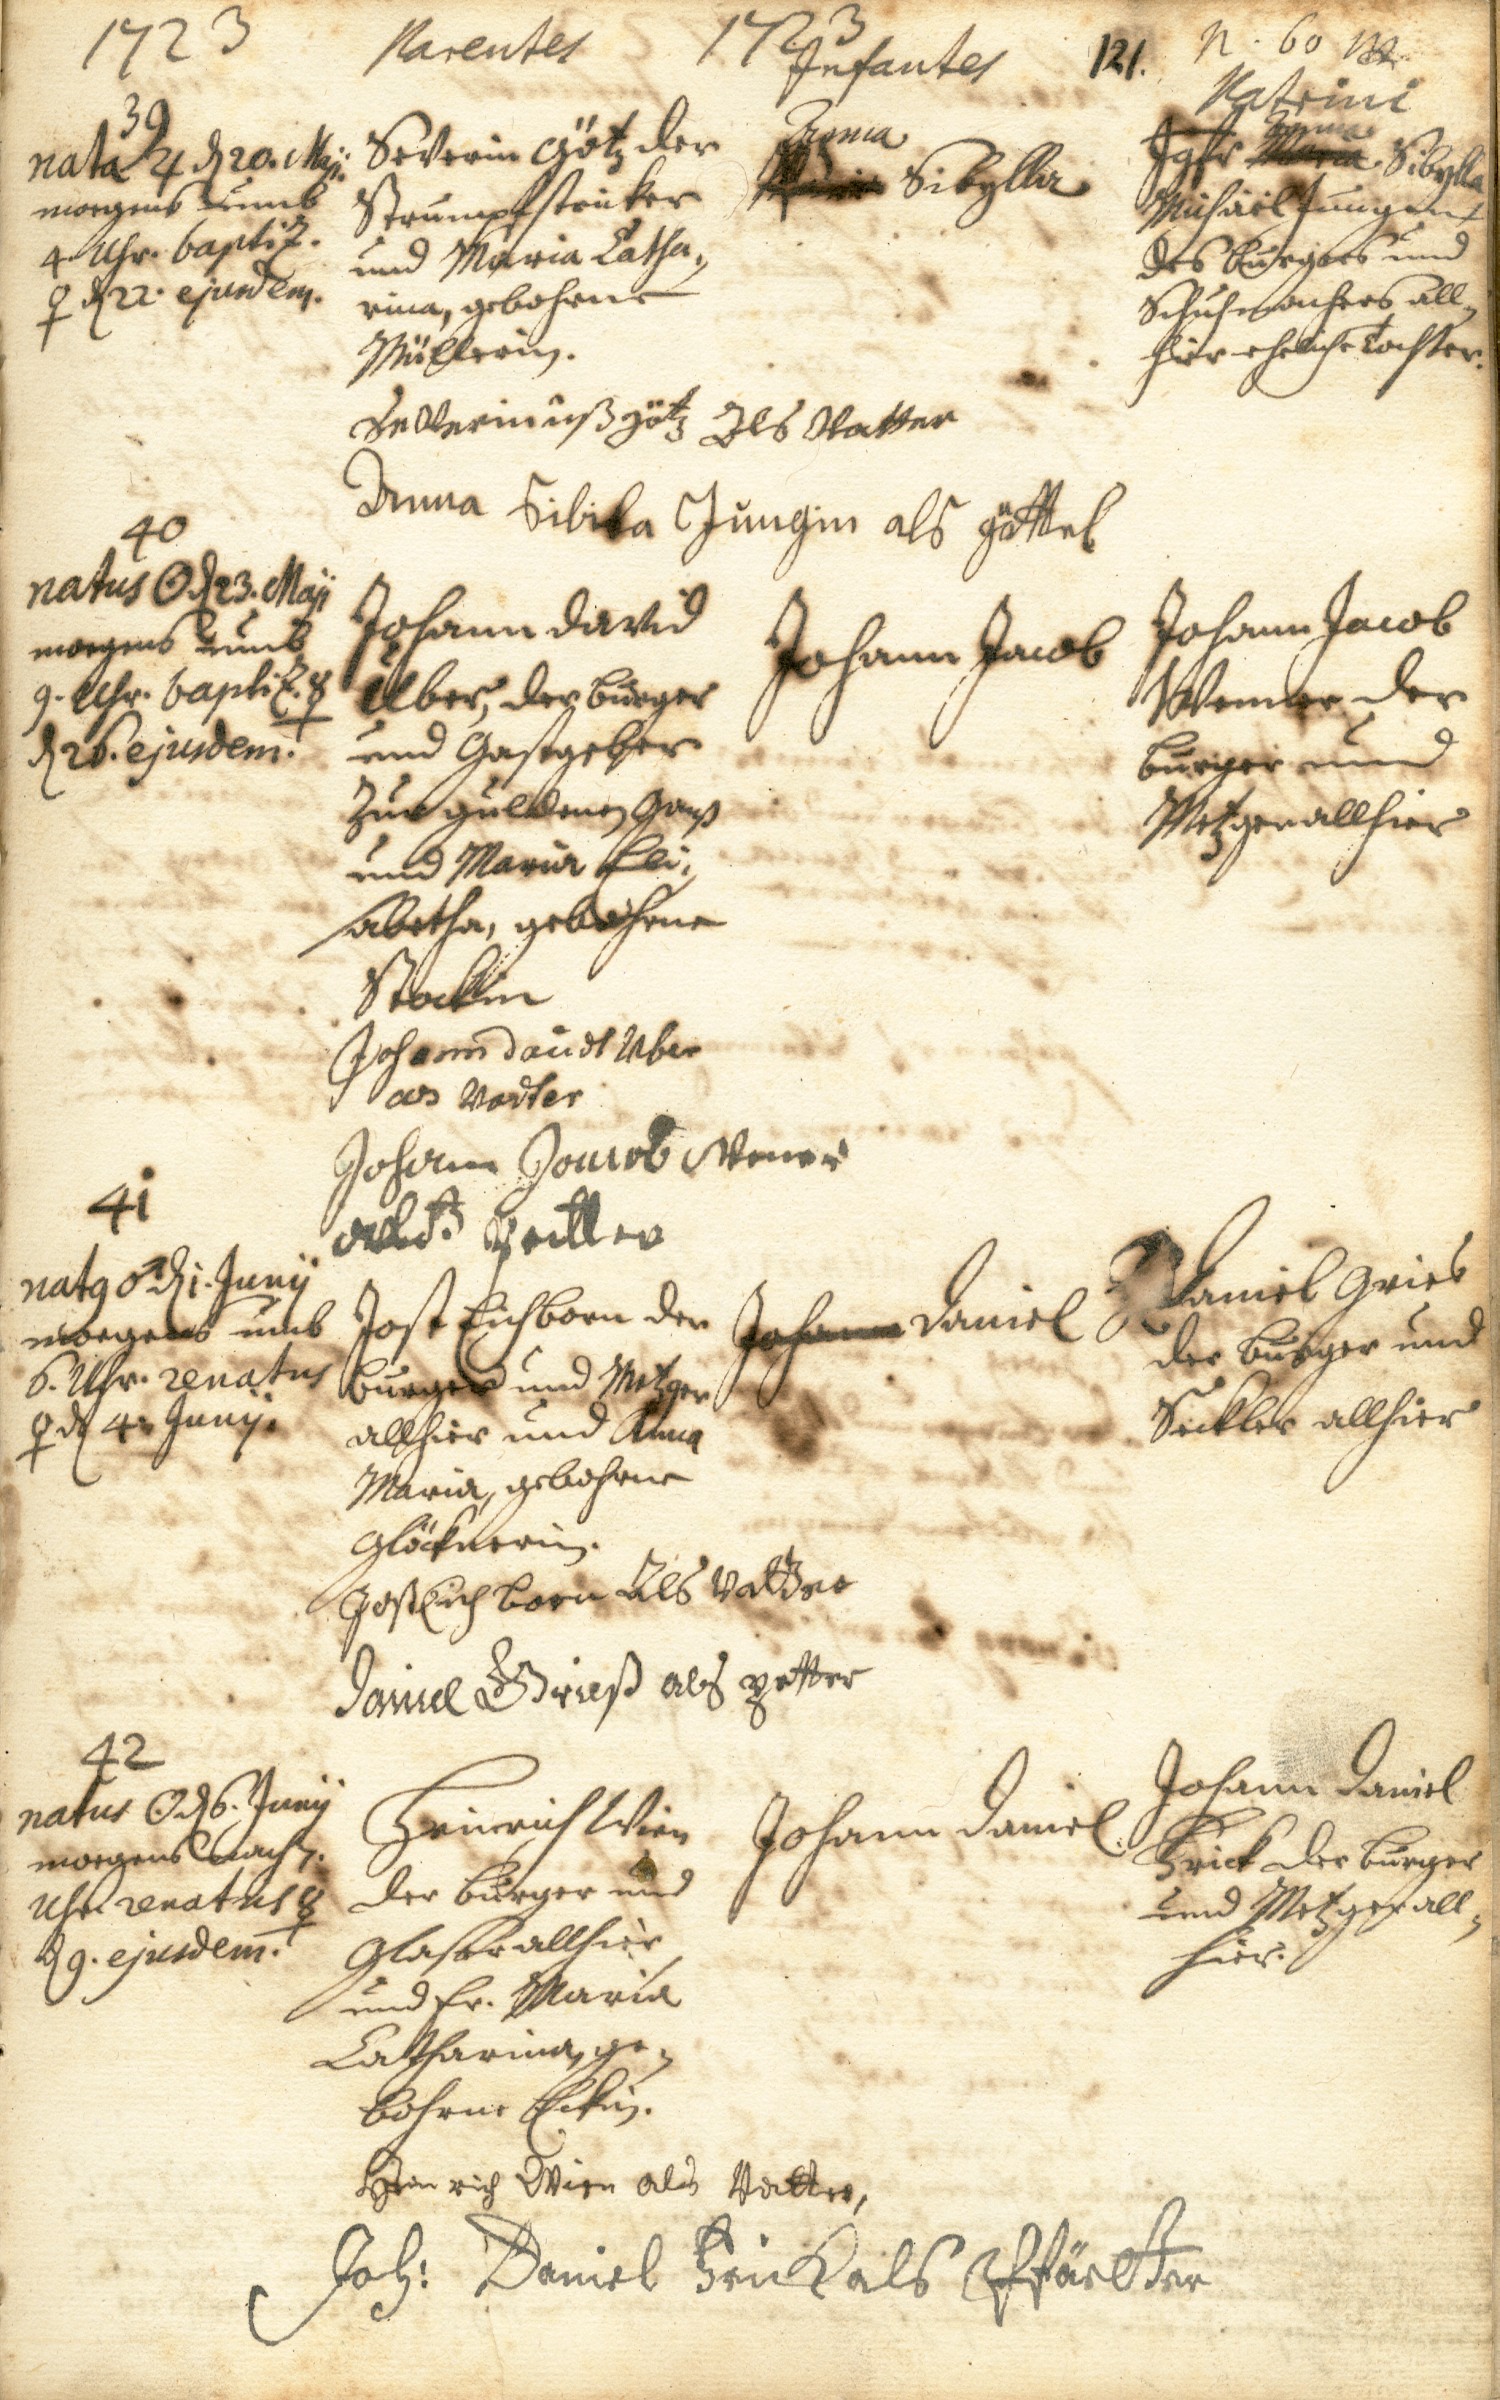 1723 Parentes 1723 Infantes 121. N. 60
Patrini
39
nata ♃ d 20. Maji
morgens umb
4. Uhr. baptiz.
♀ d 22. ejusdem.
Severin Götz der
Strumpfstricker
und Maria Catha,,
rina, gebohrne
Müllerin.
Anna
Sibylla
Jgfr Anna Sibylla
Michael Jungens
des burgers und
Schuhmachers all,,
hier eheliche Tochter.
Severinuß götz Als Vatter
Anna Sibilla Jungin als göttel
40
natus ☉ d 23. Maji
morgens umb
9. Uhr. baptiz. ☿
d 26. ejusdem.
Johann David
Uber, der burger
und Gastgeber
zur guldenen Ganß
und Maria Eli,,
sabetha, gebohrne
Stockin
Johann Jacob
Johann Jacob
Wenner der
burger und
Metzger allhier
Johann david Uber
als Vatter
Johann Jacob Wener
petter
41
natus ♂ d 1. Junij
morgens umb
6. Uhr. renatus
♀ d 4. Junij.
Jost Eichborn der
burger und Metzger
allhier und Anna
Maria, gebohrne
Glöcknerin.
Johann Daniel
Daniel Grieß
der burger und
Seckler allhier
Jost Eichborn Als Vatter
Daniel Grieß als petter
42
natus ☉ d 6. Junij
morgens nach 7.
Uhr. renatus ☿
d 9. ejusdem.
Heinrich Wien
der burger und
Glaser allhier
und Fr. Maria
Catharina, ge,,
bohrne Eckin.
Johann Daniel.
Johann Daniel
Frick der burger
und Metzger all,,
hier.
Heinrich Wien als Vatter,
Joh: Daniel Frick als